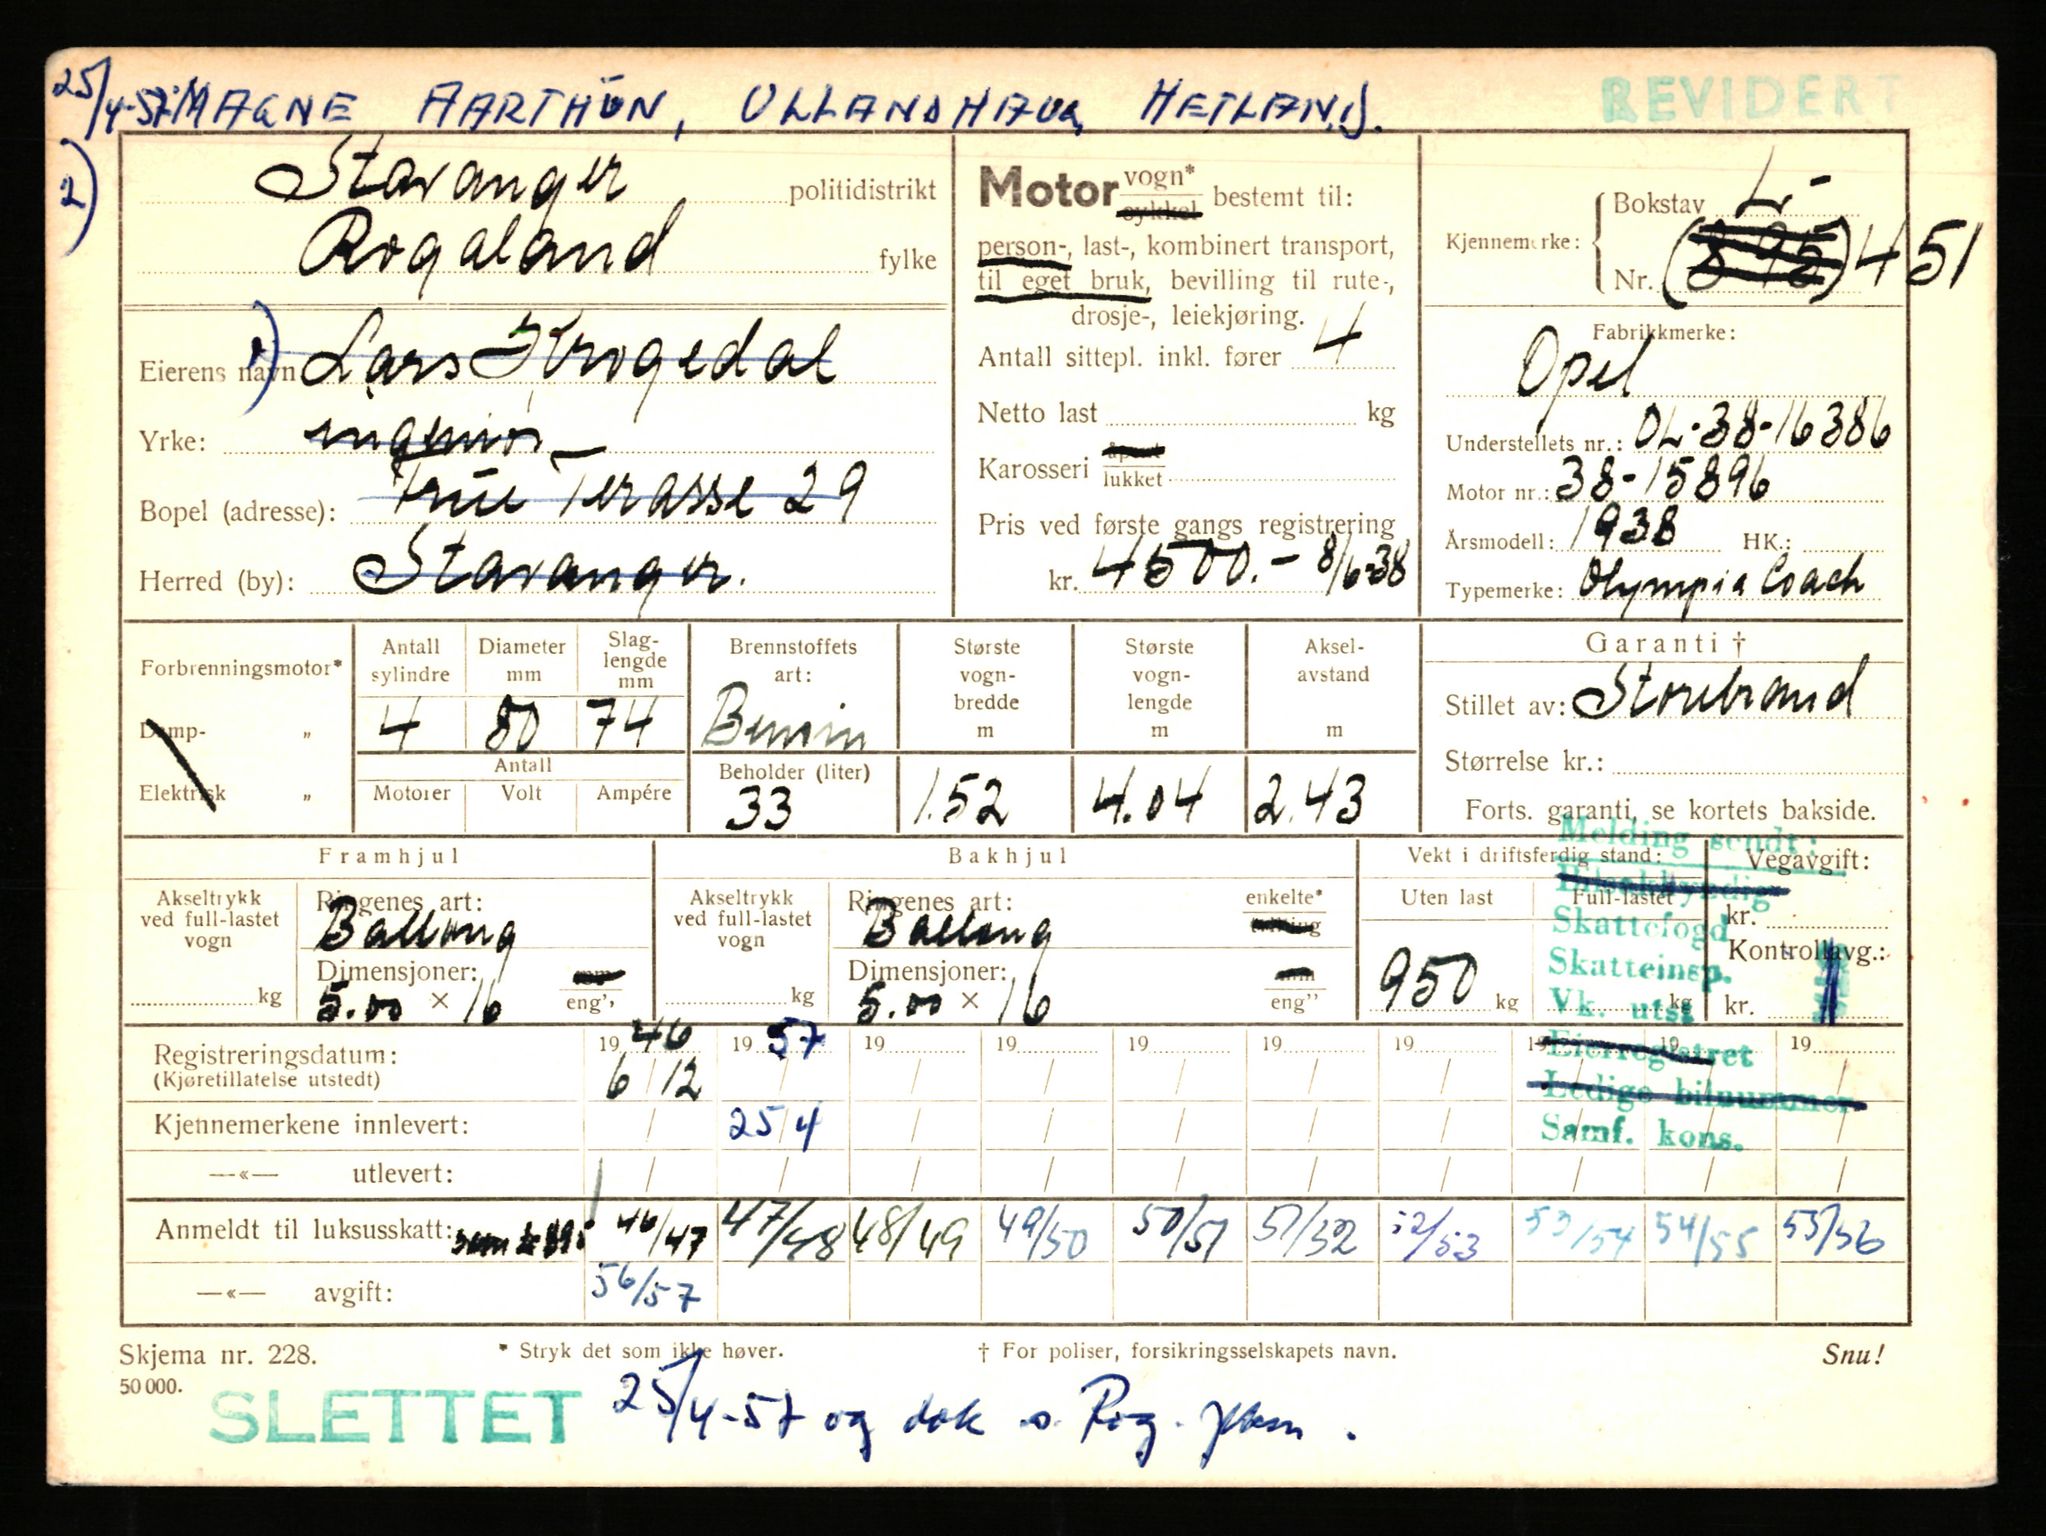 25/4-57 MAGNE AARTHUN, ULLANDHAUG, HETLAND.
REVIDERT
2)
Stavanger politidistrikt
Rogaland fylke
Motor vogn* cykkel bestemt til:
person-, last-, kombinert transport,
til eget bruk, bevilling til rute-,
drosje-, leiekjøring.
Antall sittepl. inkl. fører 4
Netto last kg
Karosseri åpent lukket
Pris ved første gangs registrering
kr. 4500.- 8/6-38
Kjennemerke: Bokstav L-
Nr. (895) 451
Eierens navn Lars Krogedal
Yrke: ingeniør
Bopel (adresse): Terasse 29
Herred (by): Stavanger.
Fabrikkmerke:
Opel
Understellets nr.: OL-38-16386
Motor nr.: 38-15896
Årsmodell: 1938 HK.:
Typemerke: Olympia Coach
Forbrenningsmotor*
Damp- „
Elektrisk „
Antall sylindre 4
Diameter mm 80
Slag-lengde mm 74
Antall
Motorer Volt Ampére
Brennstoffets art:
Bensin
Beholder (liter)
33
Største vogn-bredde m
1.52
Største vogn-lengde m
4.04
Aksel-avstand m
2.43
Garanti †
Stillet av: Storebrand
Størrelse kr.:
Forts. garanti, se kortets bakside.
Framhjul
Akseltrykk ved full-lastet vogn
kg
Ringenes art:
Ballong
Dimensjoner: mm
5.00 × 16 eng''
Bakhjul
Akseltrykk ved full-lastet vogn
kg
Ringenes art: enkelte*
Ballong tvilling
Dimensjoner: mm
5.00 × 16 eng''
Vekt i driftsferdig stand:
Uten last
950 kg
Full-lastet
kg
Vegavgift:
kr.
Kontrollavg.:
kr.
Melding sendt:
Bilsakkyndig
Skattefogd
Skatteinsp.
Vk. utst
Eierregistret
Ledige bilnummer
Samf. kons.
Registreringsdatum: 19 46 19 57 19 19 19 19 19 19 19 19
(Kjøretillatelse utstedt) 6/12
Kjennemerkene innlevert: 25/4
—«— utlevert:
Anmeldt til luksusskatt: 46/47 47/48 48/49 49/50 50/51 51/52 52/53 53/54 54/55 55/56
—«— avgift: 56/57
Skjema nr. 228.
* Stryk det som ikke høver.
† For poliser, forsikringsselskapets navn.
Snu!
50 000.
SLETTET 25/4-57 og dok s. Rog.